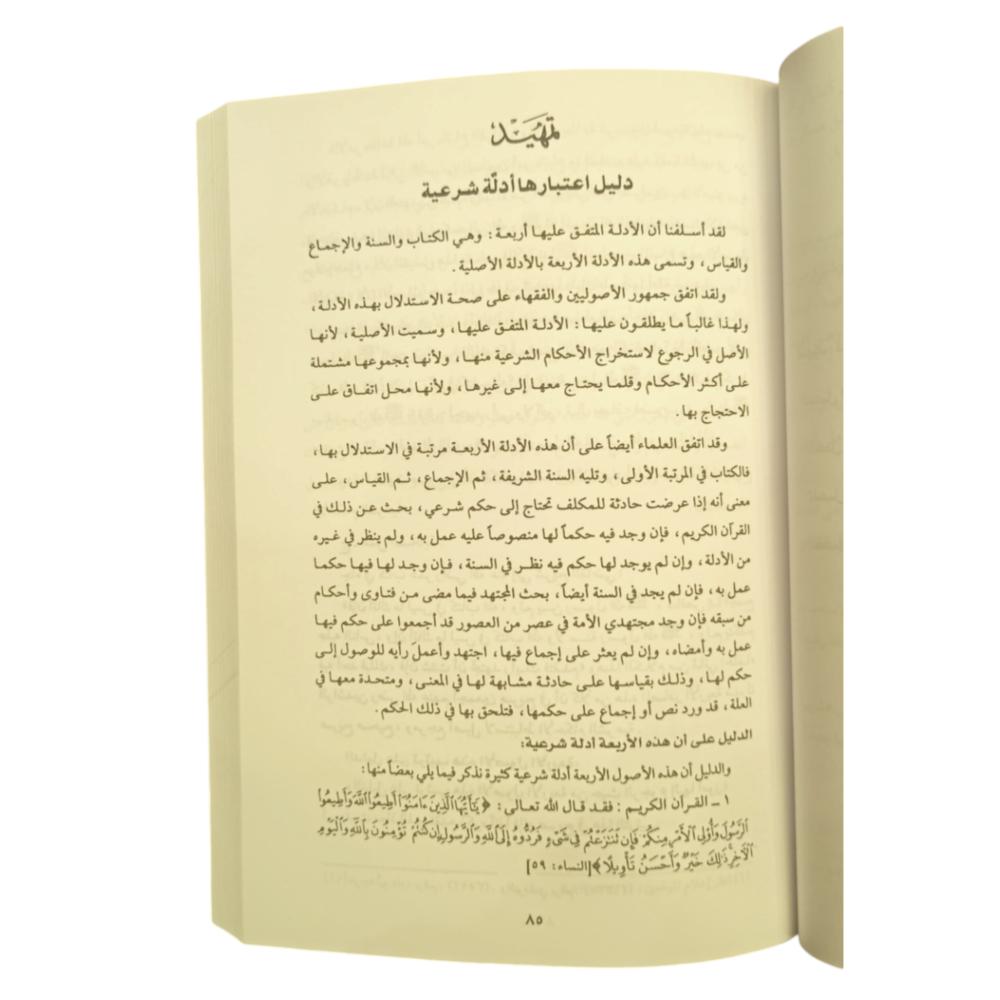 تمهيد
دليل اعتبارها أدلّة شرعية
لقد أسلفنا أن الأدلة المتفق عليها أربعة: وهي الكتاب والسنة والإجماع
والقياس، وتسمى هذه الأدلة الأربعة بالأدلة الأصلية.
ولقد اتفق جمهور الأصوليين والفقهاء على صحة الاستدلال بهذه الأدلة،
ولهذا غالباً ما يطلقون عليها: الأدلة المتفق عليها، وسميت الأصلية، لأنها
الأصل في الرجوع لاستخراج الأحكام الشرعية منها، ولأنها بمجموعها مشتملة
على أكثر الأحكام وقلما يحتاج معها إلى غيرها، ولأنها محل اتفاق على
الاحتجاج بها.
وقد اتفق العلماء أيضاً على أن هذه الأدلة الأربعة مرتبة في الاستدلال بها،
فالكتاب في المرتبة الأولى، وتليه السنة الشريفة، ثم الإجماع، ثم القياس، على
معنى أنه إذا عرضت حادثة للمكلف تحتاج إلى حكم شرعي، بحث عن ذلك في
القرآن الكريم، فإن وجد فيه حكماً لها منصوصاً عليه عمل به، ولم ينظر في غيره
من الأدلة، وإن لم يوجد لها حكم فيه نظر في السنة، فإن وجد لها فيها حكما
عمل به، فإن لم يجد في السنة أيضاً، بحث المجتهد فيما مضى من فتاوى وأحكام
من سبقه فإن وجد مجتهدي الأمة في عصر من العصور قد أجمعوا على حكم فيها
عمل به وأمضاه، وإن لم يعثر على إجماع فيها، اجتهد وأعملَ رأيه للوصول إلى
حكم لها، وذلك بقياسها على حادثة مشابهة لها في المعنى، ومتحدة معها في
العلة، قد ورد نص أو إجماع على حكمها، فتلحق بها في ذلك الحكم.
الدليل على أن هذه الأربعة أدلة شرعية:
والدليل أن هذه الأصول الأربعة أدلة شرعية كثيرة نذكر فيما يلي بعضاً منها:
١ ـ القرآن الكريم: فقد قال الله تعالى: ﴿يَٰٓأَيُّهَا ٱلَّذِينَ ءَامَنُوٓاْ أَطِيعُواْ ٱللَّهَ وَأَطِيعُواْ
ٱلرَّسُولَ وَأُوْلِي ٱلۡأَمۡرِ مِنكُمۡۖ فَإِن تَنَٰزَعۡتُمۡ فِي شَيۡءٖ فَرُدُّوهُ إِلَى ٱللَّهِ وَٱلرَّسُولِ إِن كُنتُمۡ تُؤۡمِنُونَ بِٱللَّهِ وَٱلۡيَوۡمِ
ٱلۡأٓخِرِۚ ذَٰلِكَ خَيۡرٞ وَأَحۡسَنُ تَأۡوِيلًا﴾ [النساء: ٥٩]
٨٥